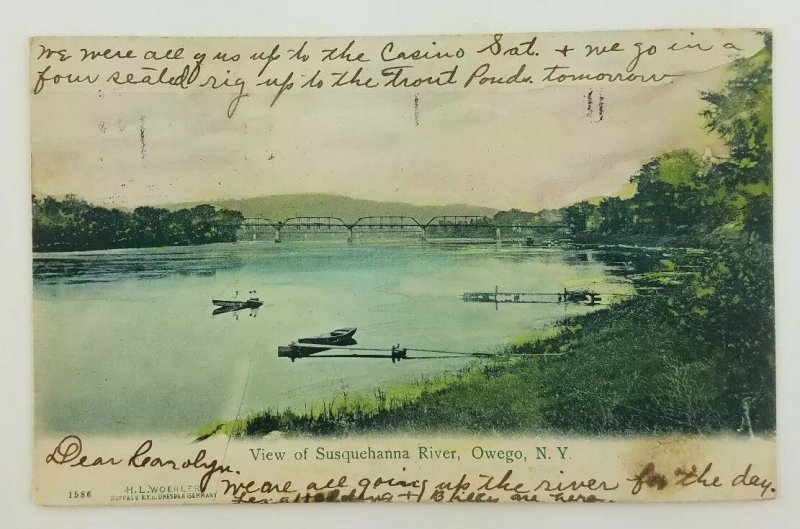 We were all of us up to the Casino Sat. + we go in a
four seated rig up to the Trout Ponds tomorrow
View of Susquehanna River, Owego, N. Y.
Dear
1586
H. L. WOEHLER
BUFFALO N.Y. U. DRESDEN GERMANY
We are all going up the river for the day.
+ are here.